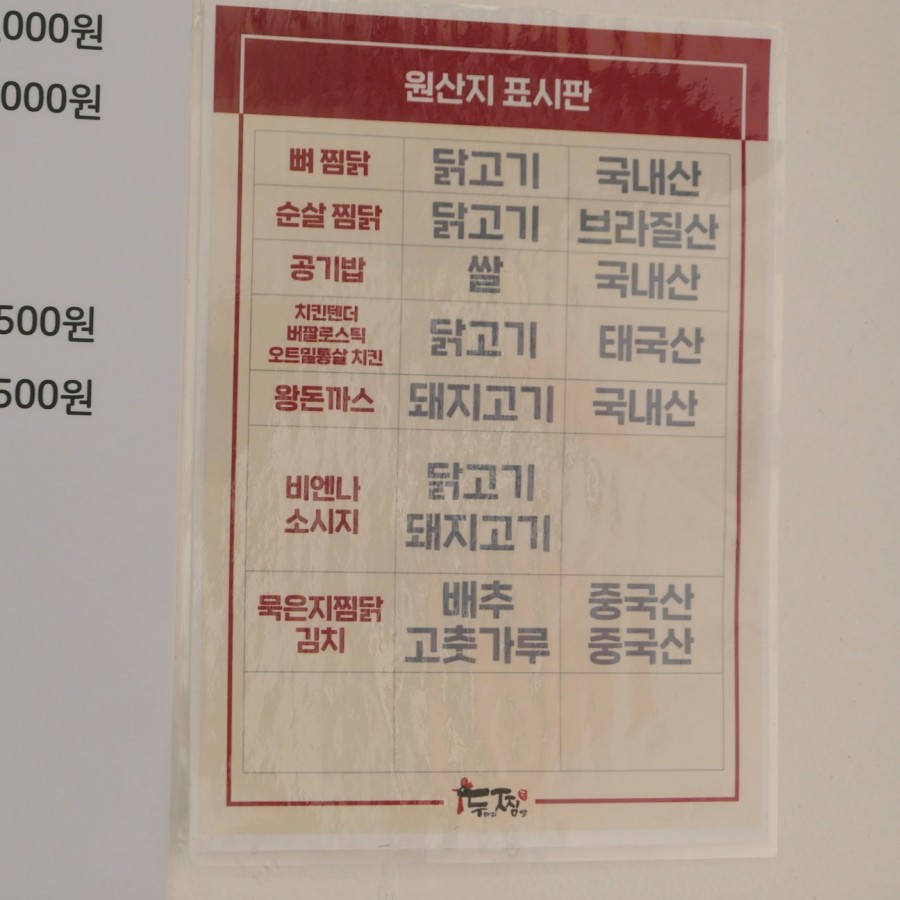 ,000원
000원
500원
500원
원산지 표시판
뼈 찜닭 닭고기 국내산
순살 찜닭 닭고기 브라질산
공기밥 쌀 국내산
치킨텐더
버팔로스틱
오트밀통살 치킨
닭고기 태국산
왕돈까스 돼지고기 국내산
비엔나
소시지
닭고기
돼지고기
묵은지찜닭
김치
배추 중국산
고춧가루 중국산
두찜